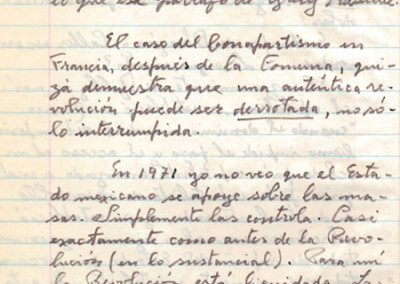 el que ese párrafo de
El caso del bonapartismo en
Francia, después de la Comuna, qui-
zá demuestra que una auténtica re-
volución puede ser derrotada, no só-
lo interrumpida.
En 1971 yo no veo que el Esta-
do mexicano se apoye sobre las ma-
sas. Simplemente las controla. Casi
exactamente como antes de la Revo-
lución (en lo sustancial). Para mí
la Revolución está liquidada. Las